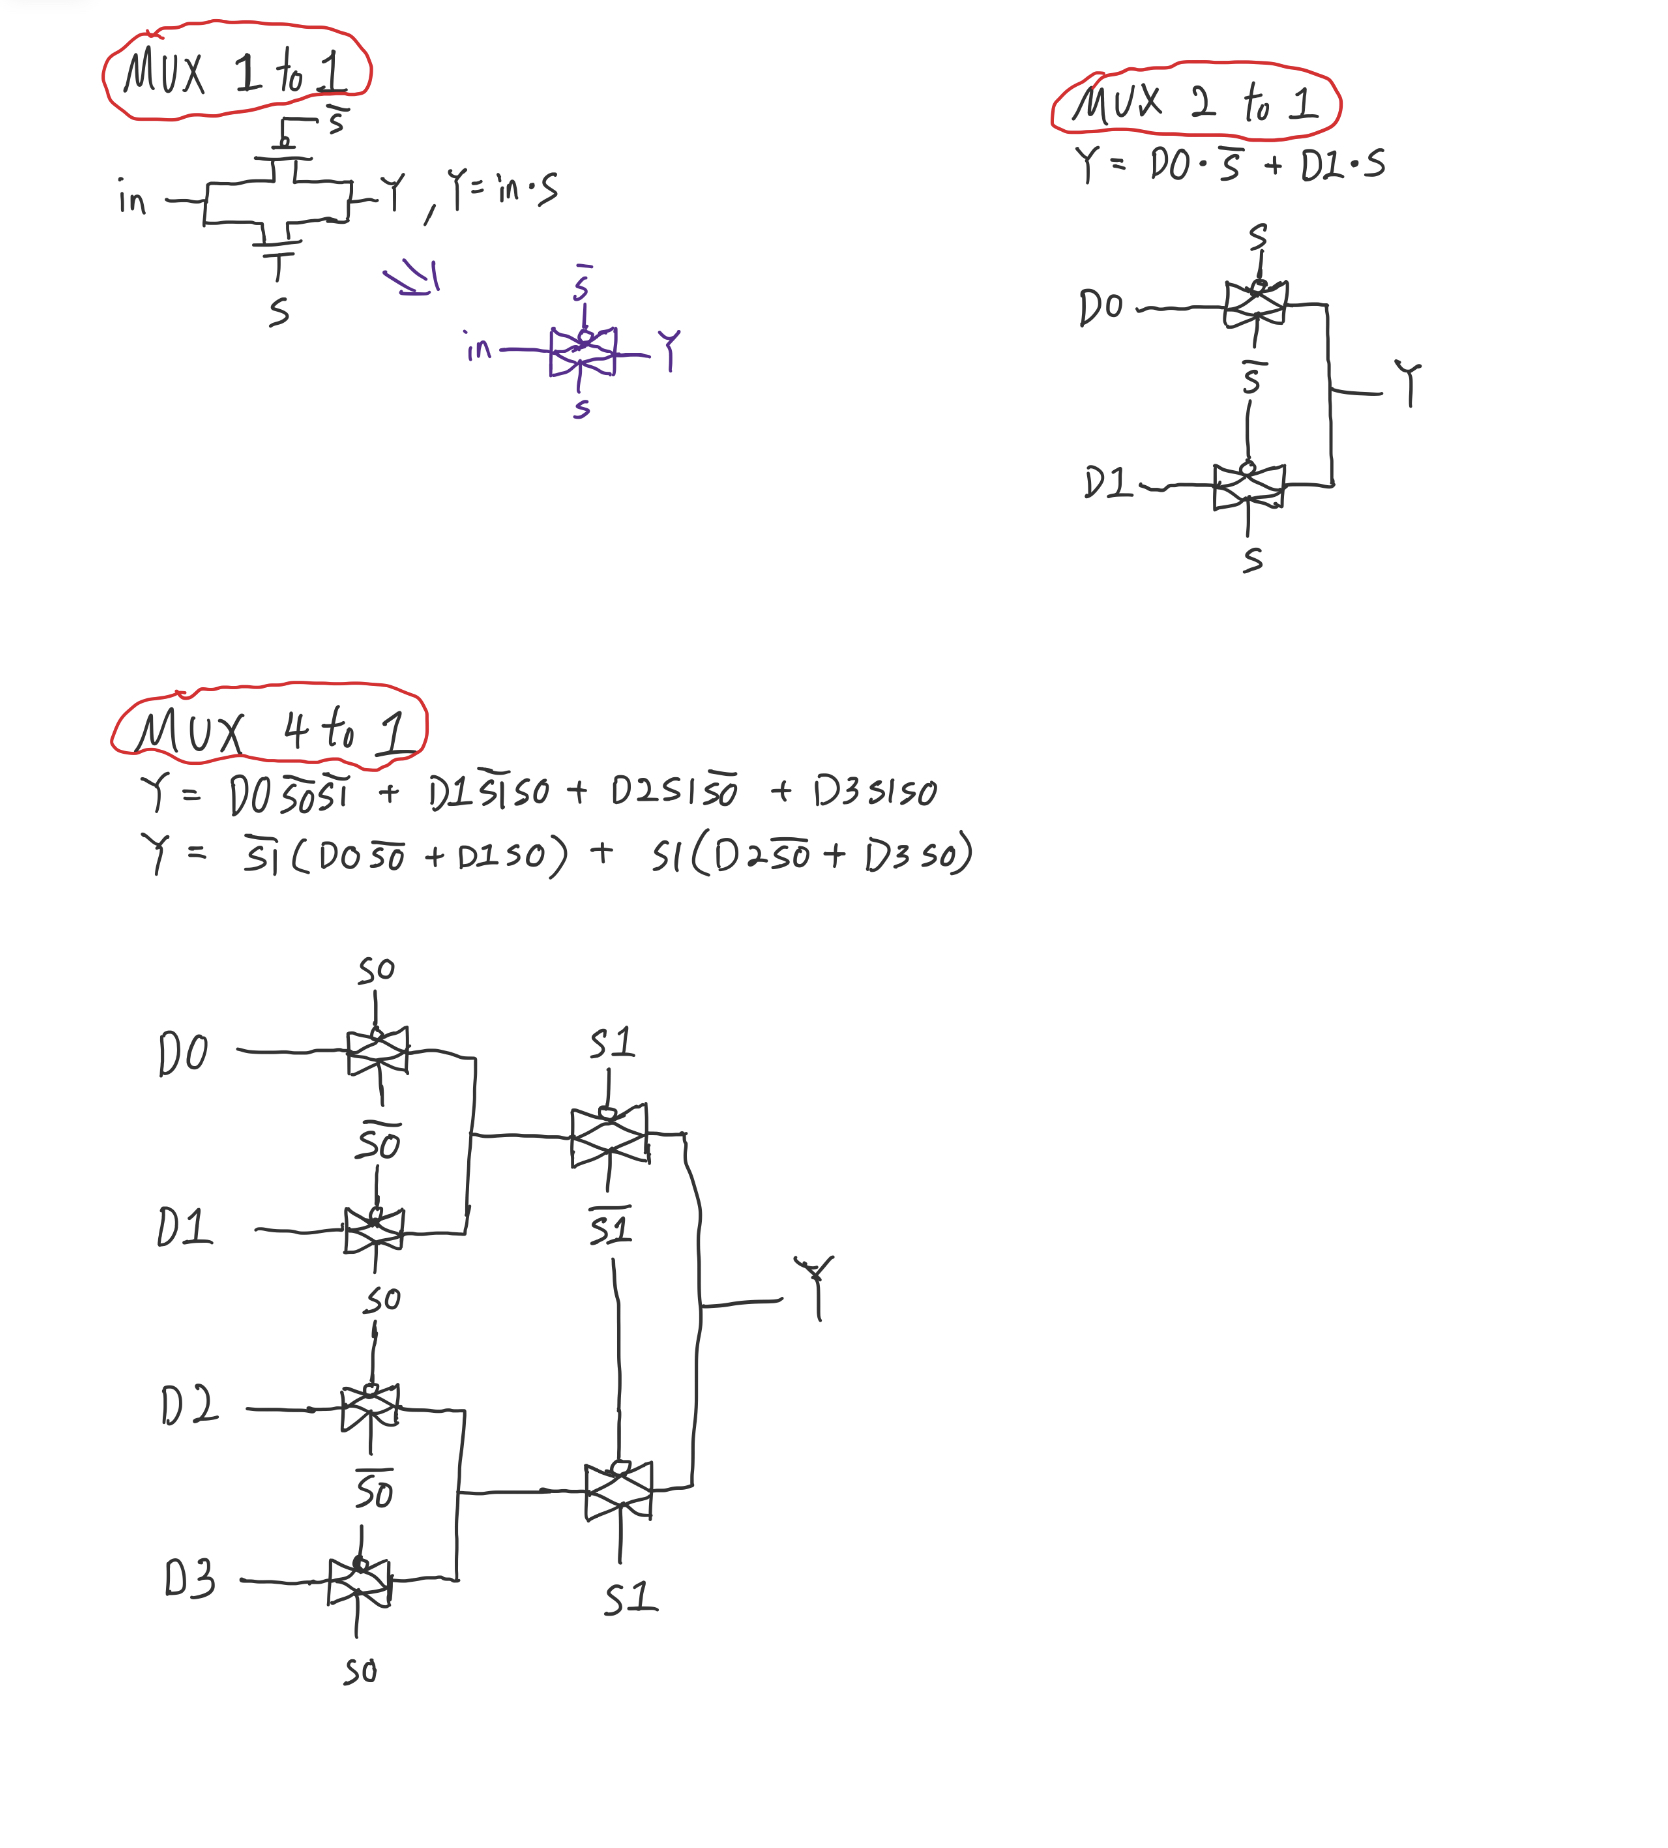 MUX 1 to 1
s̅
in Y , Y = in · S
S
s̅
in Y
s
MUX 2 to 1
Y = D0 · s̅ + D1 · S
S
D0
s̅
Y
D1
S
MUX 4 to 1
Y = D0 s̅0̅ s̅1̅ + D1 s̅1̅ s0 + D2 s1 s̅0̅ + D3 s1 s0
Y = s̅1̅ (D0 s̅0̅ + D1 s0) + s1 (D2 s̅0̅ + D3 s0)
s0
D0
s1
s̅0̅
D1
s̅1̅
s0
Y
D2
s̅0̅
D3
s1
s0